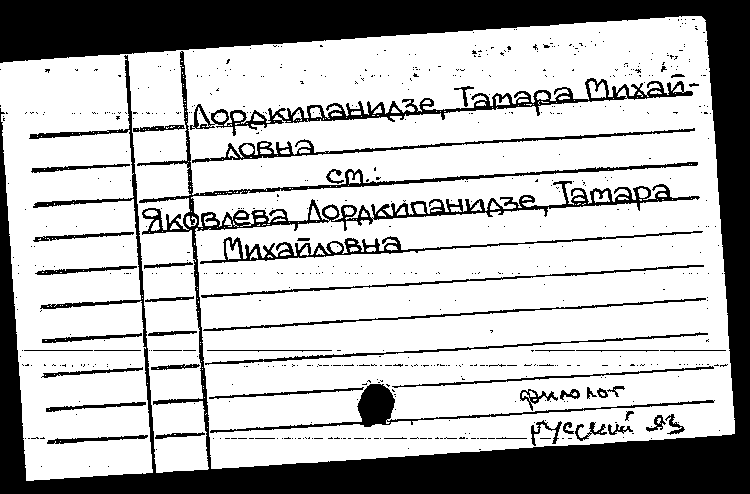 Лордкипанидзе, Тамара Михай-
ловна
см.:
Яковлева, Лордкипанидзе, Тамара
Михайловна
филолог
русский яз